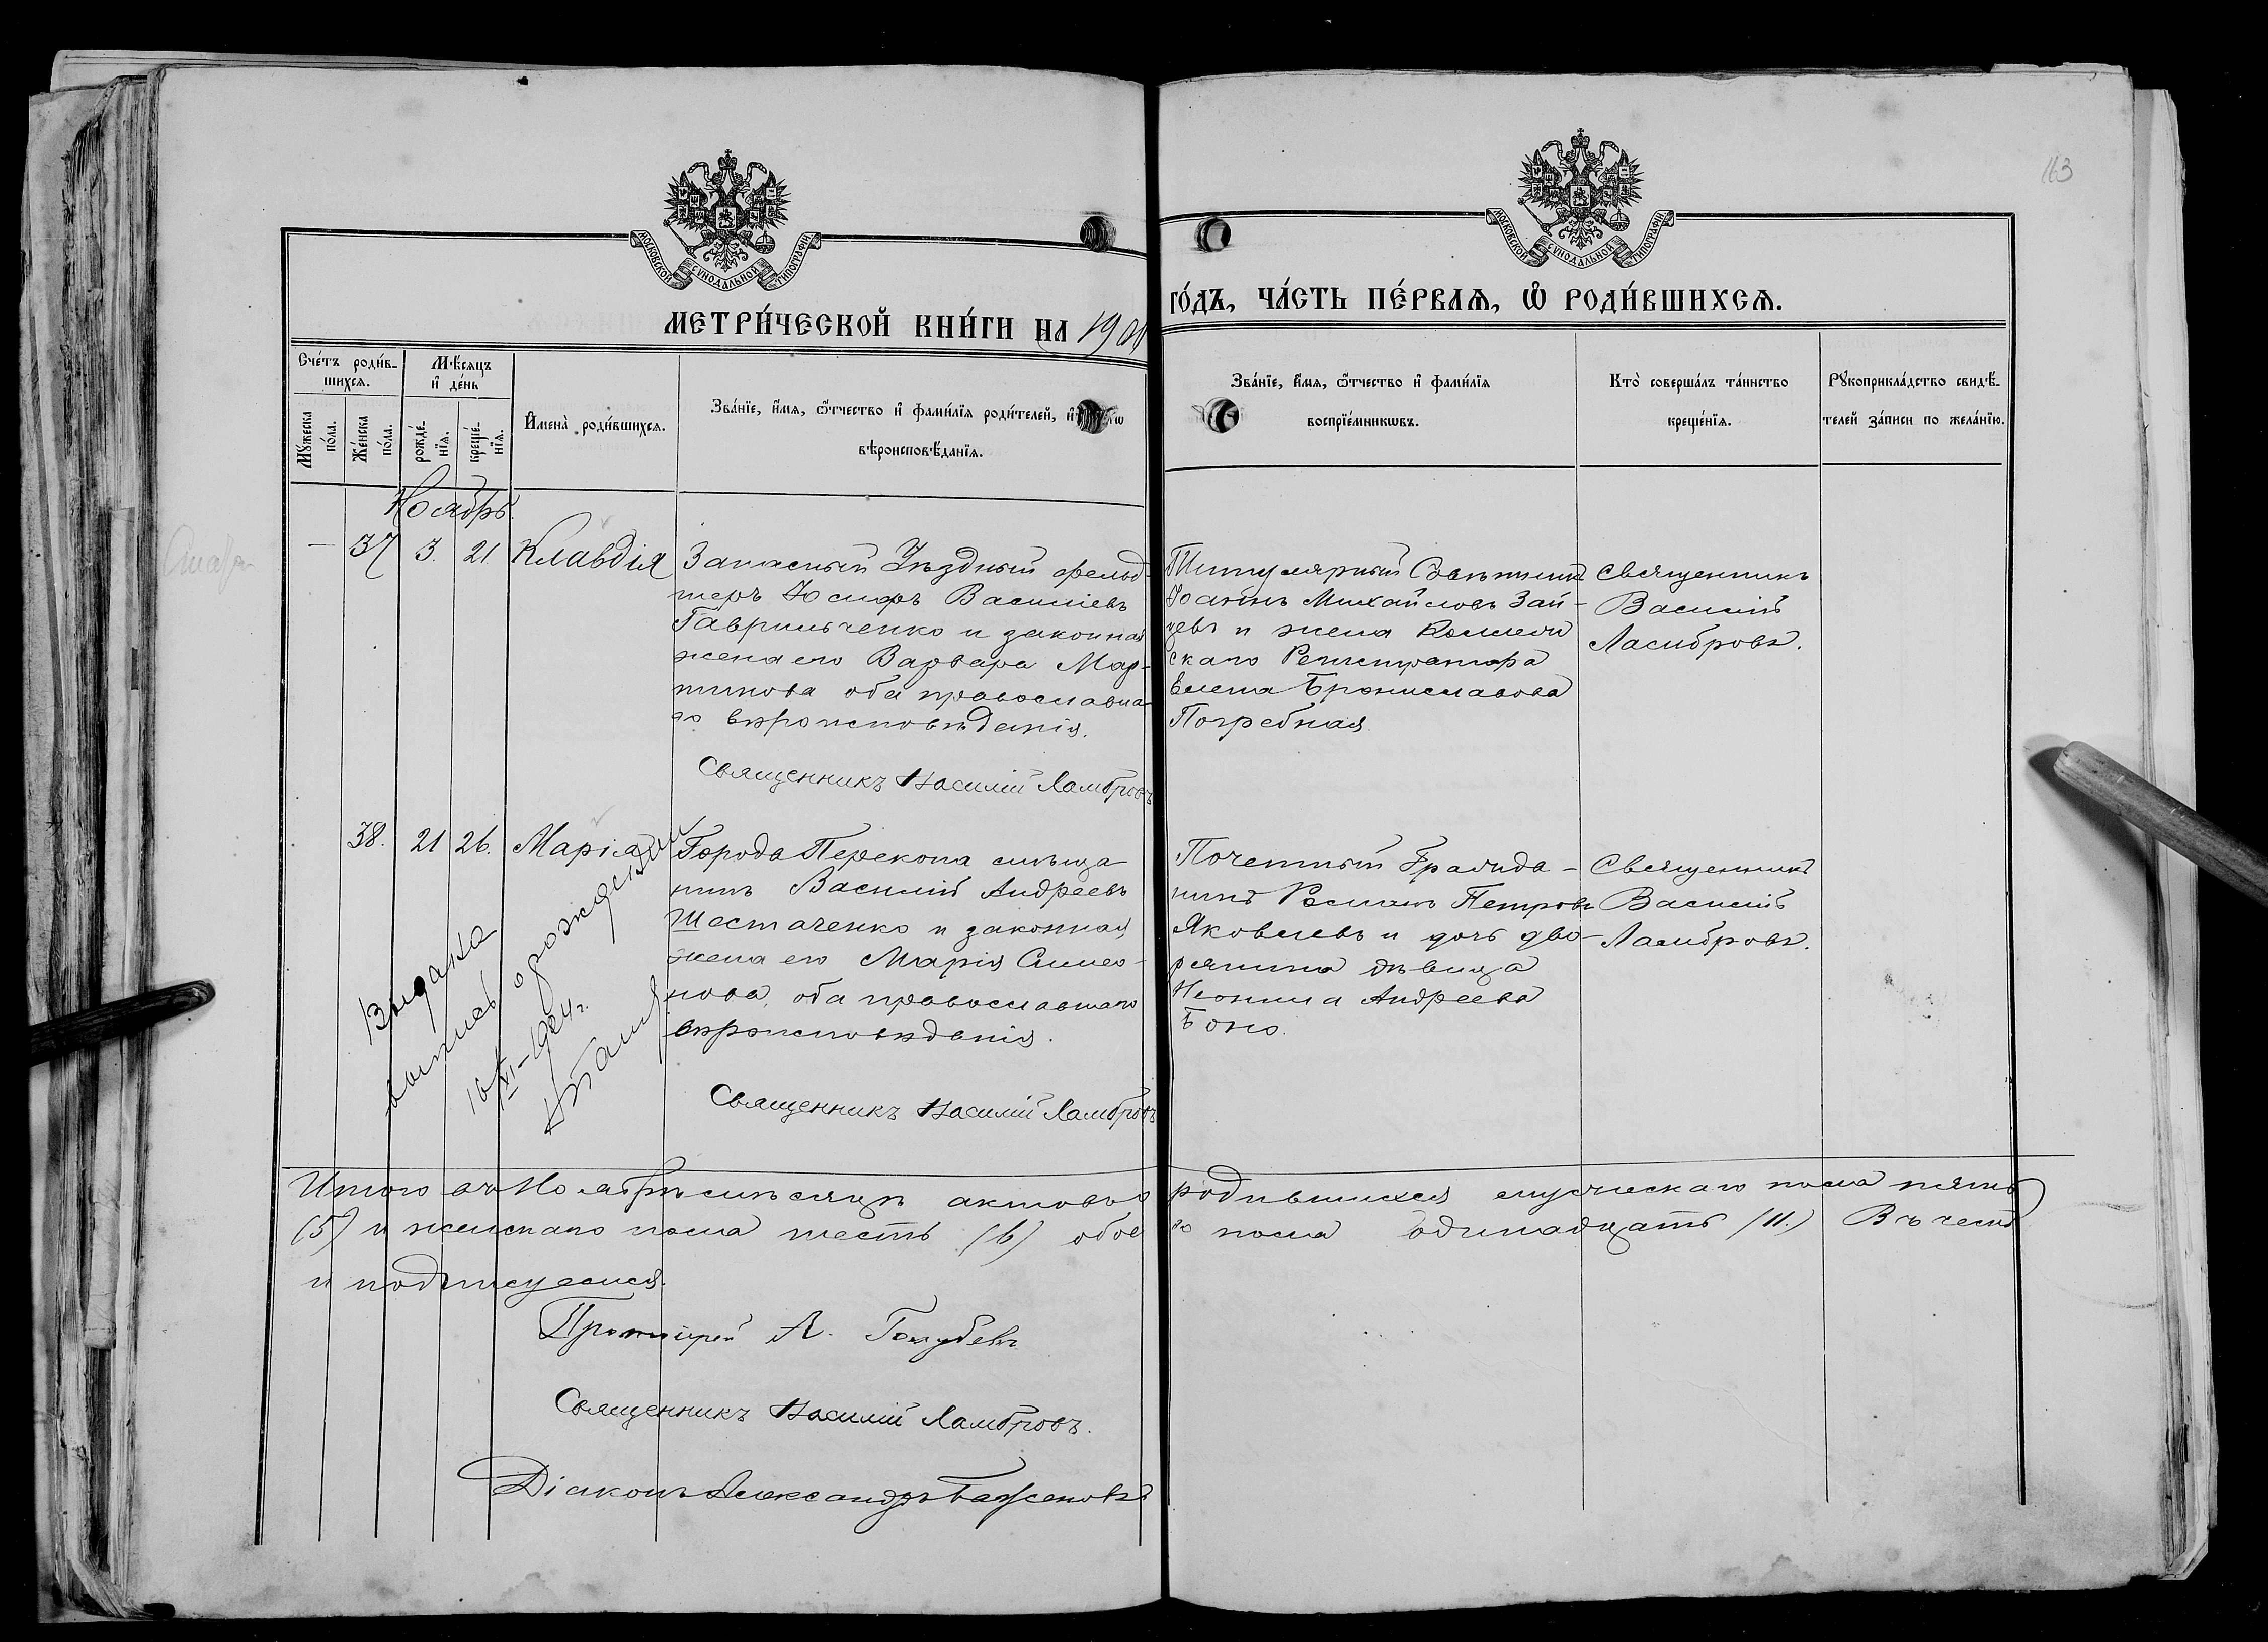 163
МОСКОВСКОЙ СУНОДАЛЬНОЙ ТИПОГРАФІИ
МОСКОВСКОЙ СУНОДАЛЬНОЙ ТИПОГРАФІИ
МЕТРИ́ЧЕСКОЙ КНИ́ГИ НА 1901
ГО́ДЪ, ЧА́СТЬ ПЕ́РВАѦ, Ѡ РОДИ́ВШИХСѦ.
Сче́тъ роди́в-
шихсѧ.
Мꙋ́жеска
по́ла.
Же́нска
по́ла.
Мѣ́сѧцъ
и҆ де́нь
рожде́-
нїѧ.
креще́-
нїѧ.
И҆мена̀ роди́вшихсѧ.
Зва́нїе, и҆́мѧ, ѻ҆́тчество и҆ фами́лїѧ роди́телей, и҆
вѣроисповѣ́данїѧ.
Зва́нїе, и҆́мѧ, ѻ҆́тчество и҆ фами́лїѧ
воспрїе́мникѡвъ.
Кто̀ соверша́лъ та́инство
креще́нїѧ.
Рꙋкоприкла́дство свидѣ́-
телей за́писи по жела́нїю.
Ноябрь.
37 3. 21 Клавдія
Запасный Уѣздный фельд-
шеръ Іосифъ Василіевъ
Гаврильченко и законная
жена его Варвара Мар-
тинова оба православна-
го вѣроисповѣданія.
Священникъ Василій Ламбровъ
Титулярный Совѣтникъ
Іоаннъ Михайловъ Зай-
цевъ и жена Коллеж
скаго Регистратора
Елена Брониславова
Погребная
Священникъ
Василій
Ламбровъ.
38. 21 26. Марія
Города Перекопа мѣща
нинъ Василій Андреевъ
Шестаченко и законная
жена его Марія Симео-
нова, оба православнаго
вѣроисповѣданія.
Священникъ Василій Ламбровъ
Почетный Гражда-
нинъ Романъ Петровъ
Яковлевъ и дочь дво-
рянина дѣвица
Неонила Андреева
Боно.
Священникъ
Василій
Ламбровъ.
Выдана
выпись о рождении
16/XI-1924г.
Итого въ Ноябрѣ мѣсяцѣ актовъ о родившихся мужескаго пола пять
(5) и женскаго пола шесть (6) обоего пола одинадцать (11.) В чемъ
и подписуемся.
Протоіерей А. Голубевъ
Священникъ Василій Ламбровъ.
Діаконъ Александръ Баженовъ